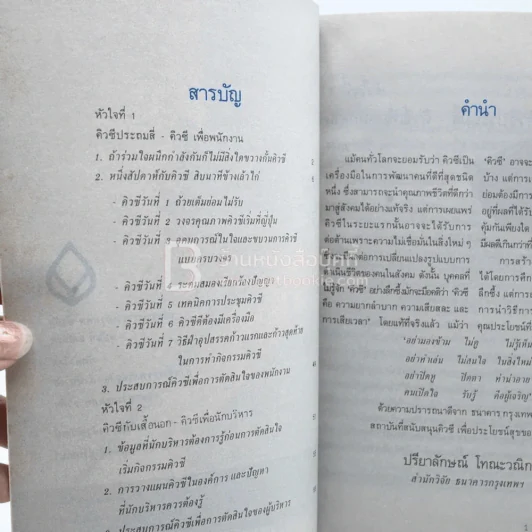 สารบัญ
หัวใจที่ 1
คิวซีประถมสี่ - คิวซี เพื่อพนักงาน
1. ถ้าร่วมใจผนึกกำลังกันก็ไม่มีสิ่งใดขวางกั้นคิวซี
2. หนึ่งสัปดาห์กับคิวซี สิบนาทีข้างเอ้าไก่
- คิวซีวันที่ 1 ถ้วยเต็มย่อมไม่รับ
- คิวซีวันที่ 2 วงจรคุณภาพคิวซีเริ่มที่ญี่ปุ่น
- คิวซีวันที่ 3 คุณภูมิ
แบบถาวร
- คิวซีวันที่ 4 ระดมสมองเรียงร้อยปัญญา
- คิวซีวันที่ 5 เทคนิคการประชุมคิวซี
- คิวซีวันที่ 6 คิวซีดีต้องมีเครื่องมือ
- คิวซีวันที่ 7 วิธีฝ่าอุปสรรคก้าวแรกและก้าวสุดท้าย
ในการทำกิจกรรมคิวซี
3. ประสบการณ์คิวซีเพื่อการตัดสินใจของพนักงาน
หัวใจที่ 2
คิวซีกับเสื้อนอก - คิวซีเพื่อนักบริหาร
1. ข้อมูลที่นักบริหารต้องการรู้ก่อนการตัดสินใจ
เริ่มกิจกรรมคิวซี
2. การวางแผนคิวซีในองค์การ และปัญหา
ที่นักบริหารควรต้องรู้
3. ประสบการณ์คิวซีเพื่อการตัดสินใจของผู้บริหาร
คำนำ
แม้คนทั่วโลกจะยอมรับว่า คิวซีเป็น
เครื่องมือในการพัฒนาคนที่ดีที่สุดชนิด
หนึ่ง ซึ่งสามารถจะนำคุณภาพชีวิตที่ดีกว่า
มาสู่สังคมได้อย่างแท้จริง แต่การเผยแพร่
คิวซีในระยะแรกนั้นอาจจะได้รับการ
ต่อต้านเพราะความไม่เชื่อมั่นในสิ่งใหม่ ๆ
ที่มีผลต่อการเปลี่ยนแปลงรูปแบบการ
ดำเนินชีวิตของคนในสังคม ดังนั้น บุคคลที่
ไม่รู้จัก "คิวซี" อย่างลึกซึ้งมักจะมีอคติว่า "คิวซี
คือ ความยากลำบาก ความเสียสละ และ
การเสียเวลา" โดยแท้ที่จริงแล้ว แม้ว่า
"คิวซี" อาจจะ
บ้าง แต่การ
ย่อมต้องมีการ
อยู่ที่ผลที่ได้
คุ้มกันเพียงใด
มีผลดีเกินกว่า
การสร้า
ได้โดยการศึก
ลึกซึ้ง แต่การ
การนำวิธีการ
คุณประโยชน์ที่
"อย่ามองข้าม ไม่ดู ไม่รู้เห็น
อย่าทำเล่น ไม่สนใจ ในสิ่งใหม่
อย่าปิดหู ปิดตา ทำ
คนเปิดใจ รับรู้ คือผู้เจริญ"
ด้วยความปรารถนาดีจาก ธนาคาร กรุงเทพ
สถาบันที่สนับสนุนคิวซี เพื่อประโยชน์สุขของ
ปรียาลักษณ์ โทณะวณิก
สำนักวิจัย ธนาคารกรุงเทพฯ